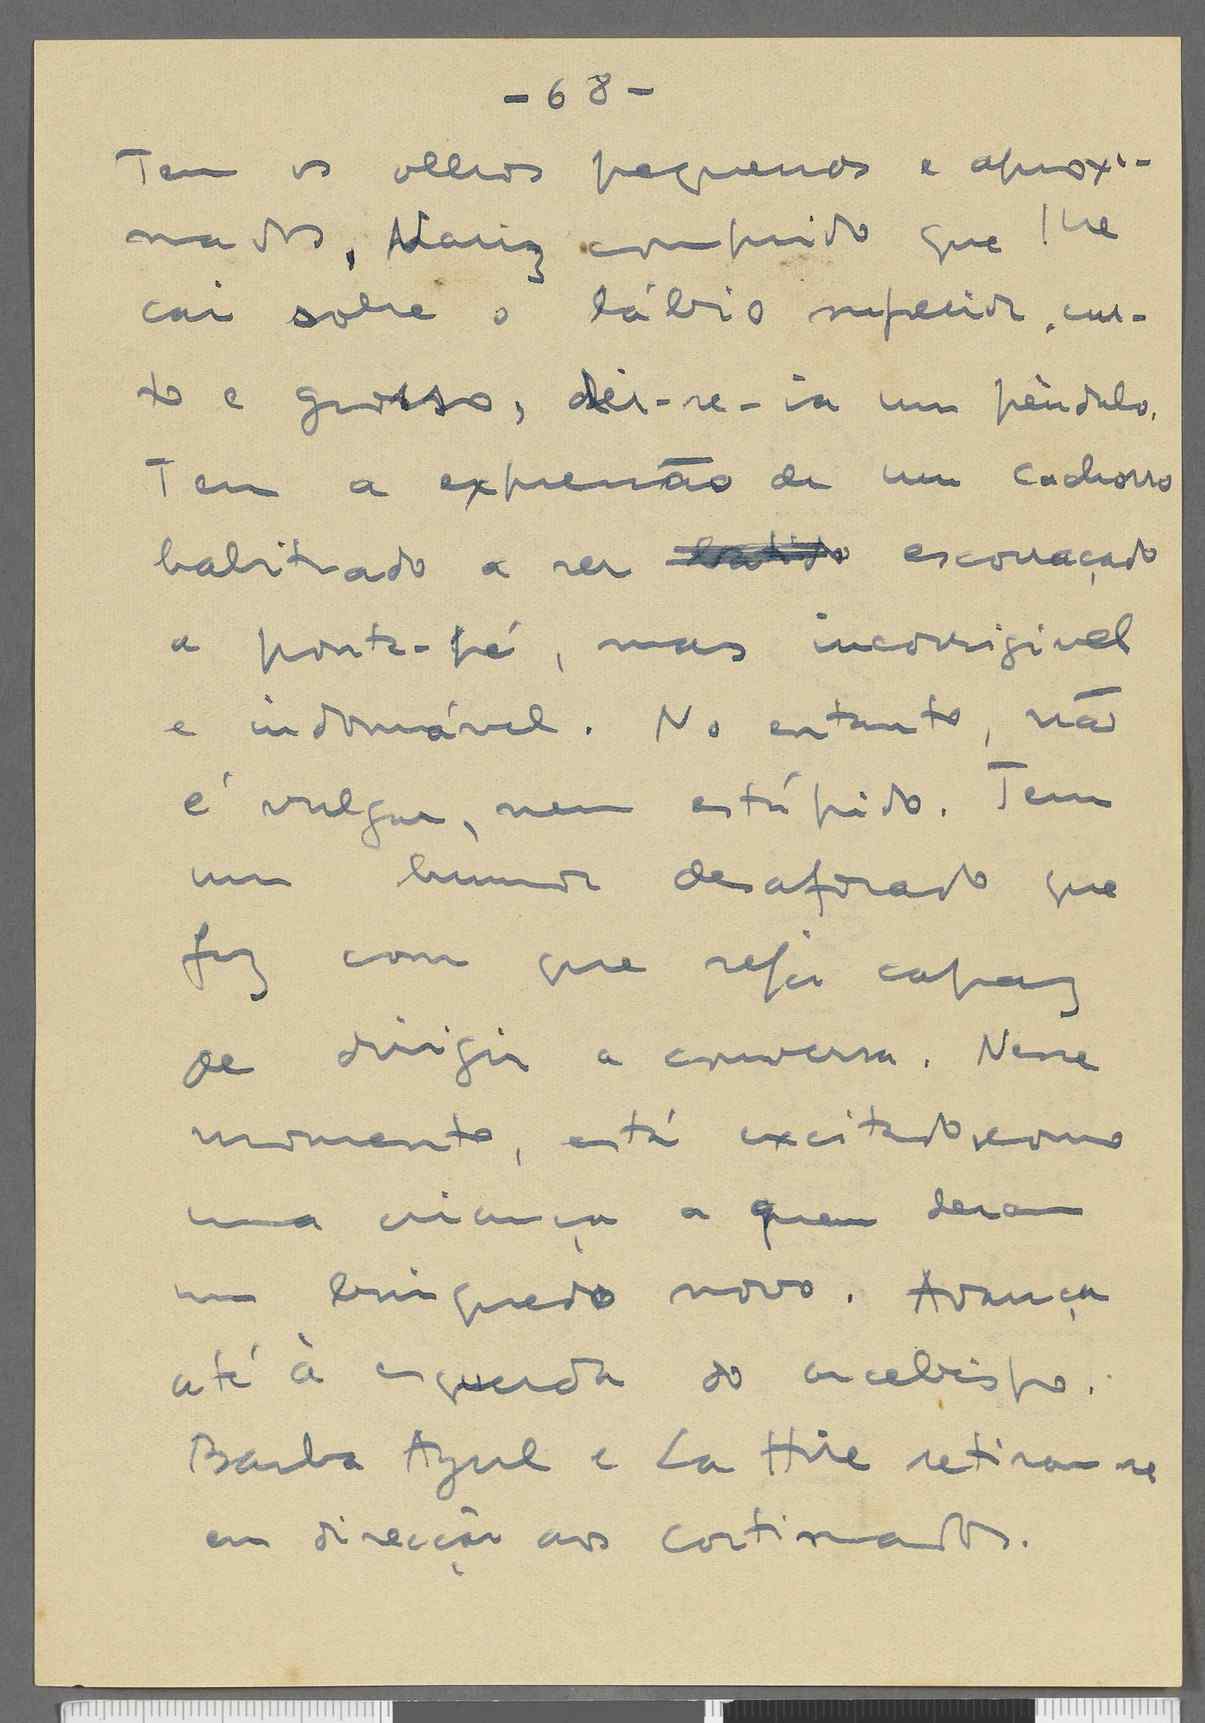 - 68 -
Tem os olhos pequenos e aproxi-
mados, Nariz comprido que lhe
cai sobre o lábio superior, cur-
to e grosso, dir-se-ia um pêndulo.
Tem a expressão de um cachorro
habituado a ser batido escorraçado
a ponta-pé, mas incorrigivel
e indomável. No entanto, não
é vulgar, nem estúpido. Tem
um humor desaforado que
faz com que seja capaz
de dirigir a conversa. Nesse
momento, está excitado, como
uma criança a quem deram
um brinquedo novo. Avança
até à esquerda do arcebispo.
Barba Azul e La Hire retiram se
em direcção aos cortinados.